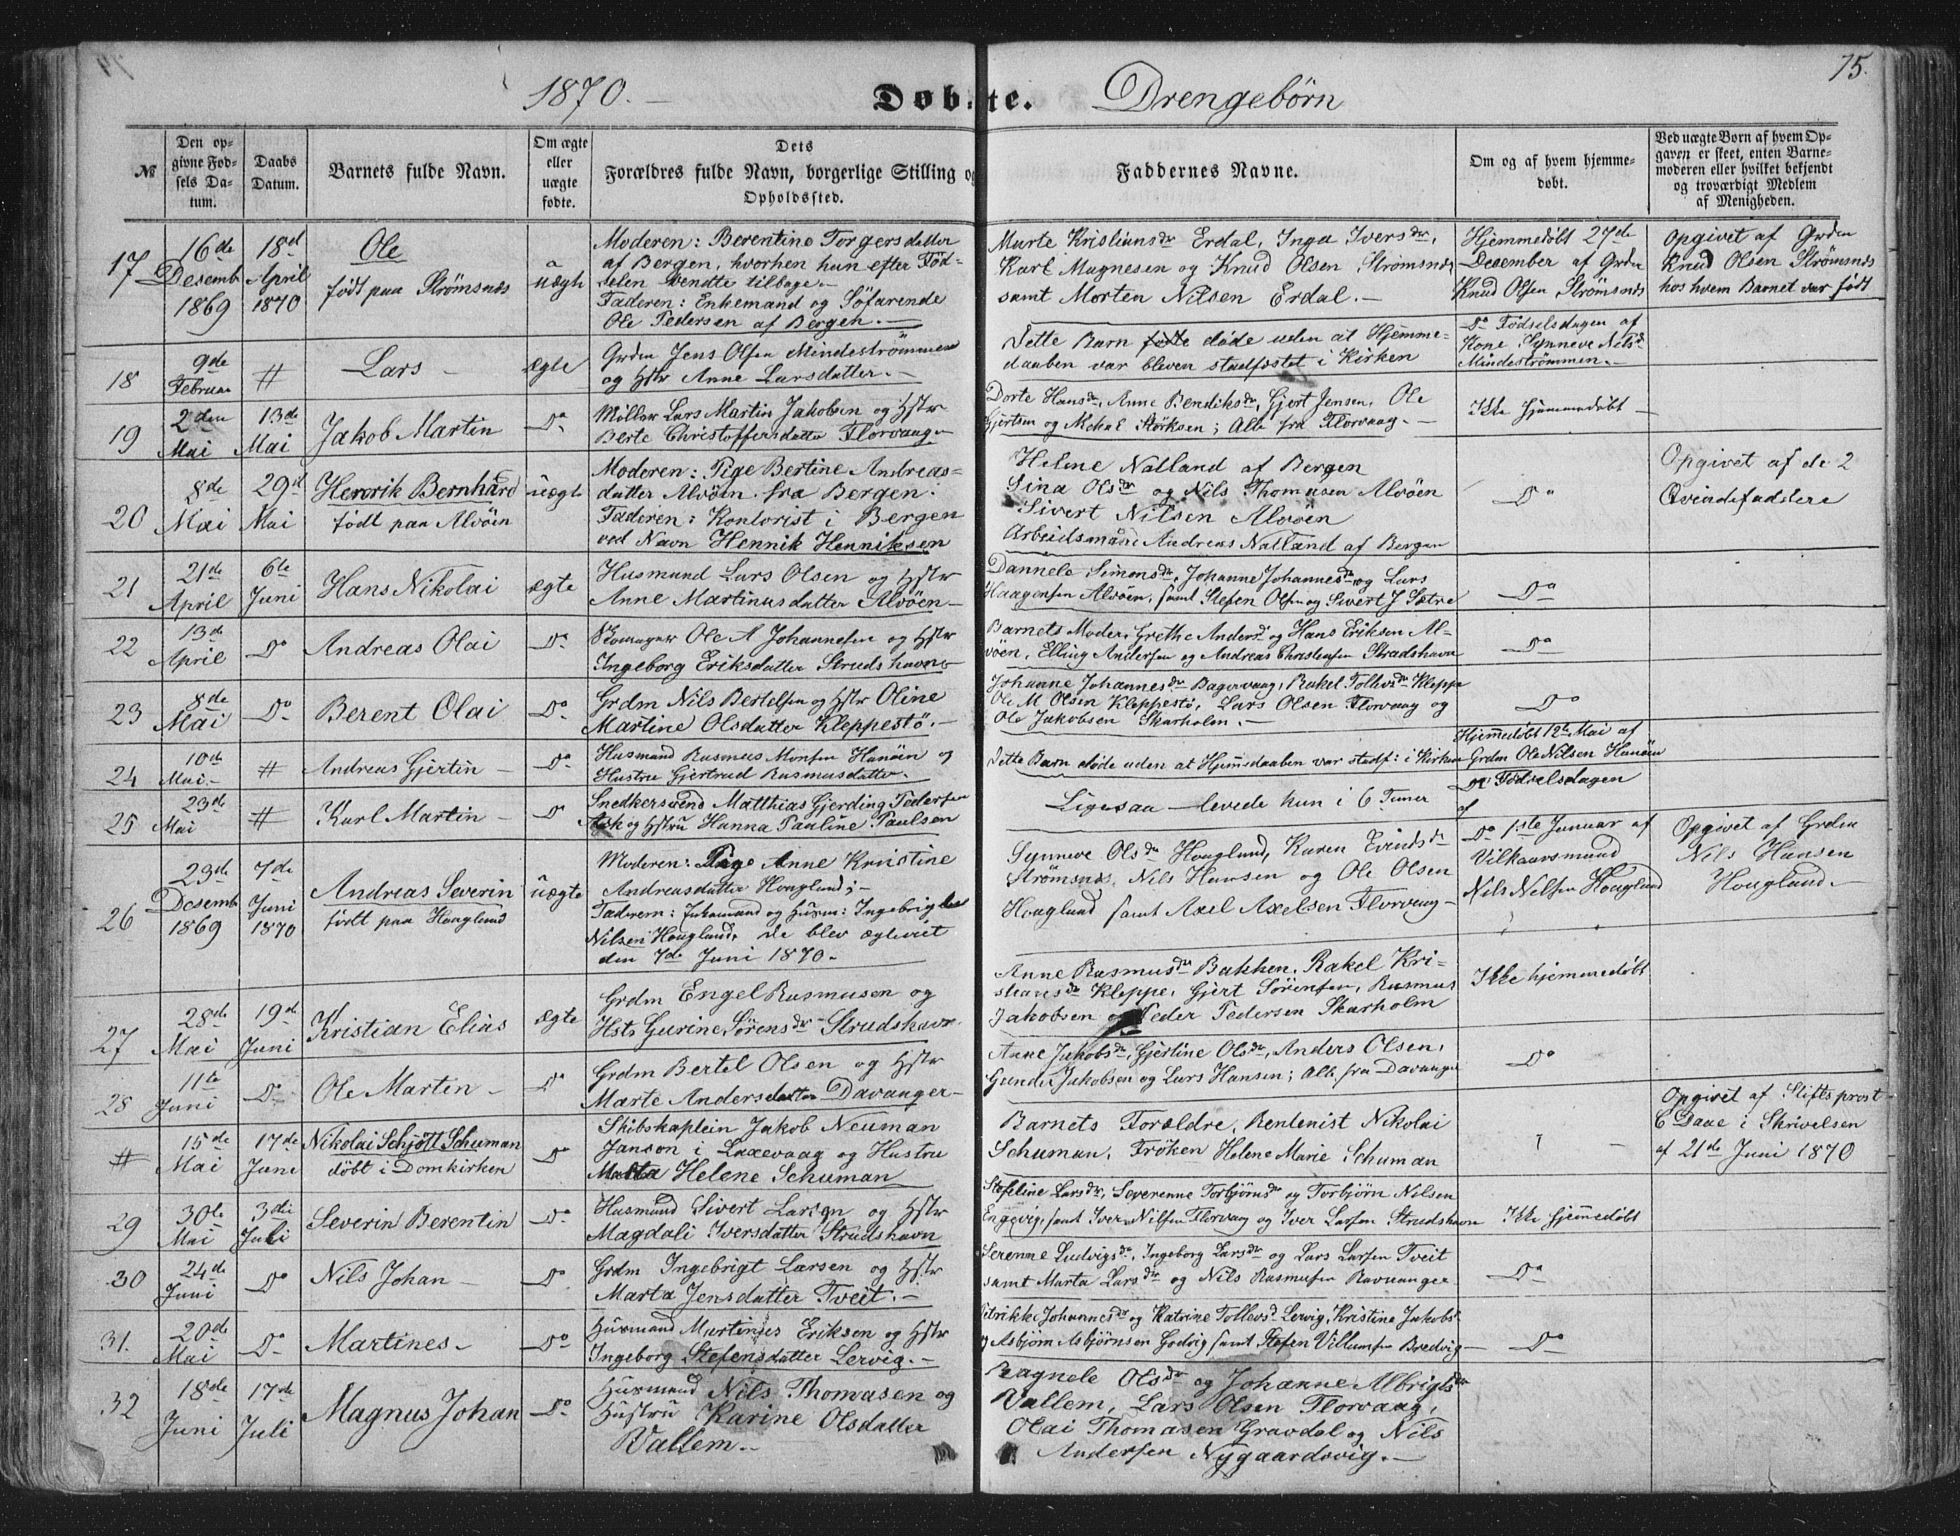 75.
1870. — Døbte. Drengebørn
№
Den opgivne Fødsels Datum.
Daabs Datum.
Barnets fulde Navn.
Om ægte eller uægte fødte.
Dets Forældres fulde Navn, borgerlige Stilling og Opholdssted.
Faddernes Navne.
Om og af hvem hjemmedøbt.
Ved uægte Børn af hvem Opgaven er skeet, enten Barnemoderen eller hvilket bekjendt og troværdigt Medlem af Menigheden.
17
16de Desemb 1869
18de April 1870
Ole
født paa Strømsnes
uægte
Moderen: Berentine Torgersdatter
af Bergen, hvorhen hun efter Fød-
selen vendte tilbage.
Faderen: Enkemand og Søfarende
Ole Pedersen af Bergen.
Marte Kristiansdr Erdal, Inga Iversdr,
Karl Magnesen og Knud Olsen Strømsnes
samt Morten Nilsen Erdal.
Hjemmedøbt 27de
December af Grdm
Knud Olsen Strømsnes
Opgivet af Grdm
Knud Olsen Strømsnes
hos hvem Barnet var født
18
9de Februar
#
Lars
ægte
Grdm Jens Olsen Mindestrømmen
og Hstr Anne Larsdatter.
Dette Barn døde uden at Hjemme-
daaben var bleven stadfæstet i Kirken
Do Fødselsdagen af
Kone Synneve Nilsdr
Mindestrømmen.
19
2den Mai
13de Mai
Jakob Martin
Do
Müller Lars Martin Jakobsen og Hstr
Berte Christoffersdatter Florvaag
Dorte Hansdr, Anne Bendiksdr, Gjert Jensen, Ole
Gjertsen og Mekal Størksen; Alle fra Florvaag.
Ikke hjemmedøbt
20
8de Mai
29de Mai
Henrik Bernhard
født paa Alvøen
uægte
Moderen: Pige Bertine Andreas-
datter Alvøen fra Bergen.
Faderen: Kontorist i Bergen
ved Navn Hennik Henniksen
Helene Natland af Bergen
Sina Olsdr og Nils Thomasen Alvøen
Sivert Nilsen Alvøen
Arbeidsmand Andreas Natland af Bergen
Do
Opgivet af de 2
Qvindefaddere
21
21de April
6te Juni
Hans Nikolai
ægte
Husmand Lars Olsen og Hstr
Anne Martinusdatter Alvøen
Dannele Simonsdr, Johanne Johannesdr og Lars
Haagensen Alvøen, samt Stefen Olsen og Sivert J Sætre
Do
22
13de April
Do
Andreas Olai
Do
Skomager Ole A Johannesen og Hstr
Ingeborg Eriksdatter Strudshavn
Barnets Moder, Grethe Andersdr og Hans Eriksen Al-
vøen, Elling Andersen og Andreas Christensen Strudshavn
Do
23
8de Mai
Do
Berent Olai
Do
Grdm Nils Bertelsen og Hstr Oline
Martine Olsdatter Kleppestø.
Johanne Johannesdr Bagervaag, Rakel Tollivsdr Kleppe
Ole M. Olsen Kleppestø, Lars Olsen Florvaag og
Ole Jakobsen Skarholm.
Do
24
10de Mai
#
Andreas Gjertin
Do
Husmand Rasmus Monsen Hanøen og
Hustru Gjertrud Rasmusdatter.
Dette Barn døde uden at Hjemmedaaben var stadf: i Kirken
Hjemmedøbt 12te Mai af
Grdm Ole Nilsen Hanøen
25
23de Mai
#
Karl Martin
Do
Snedkersvend Matthias Gjerding Pedersen
Ask og Hstru Hanna Pauline Paulsen
Ligesaa — levede kun i 6 Timer
Fødselsdagen
af
26
23de Desemb 1869
7de Juni 1870
Andreas Severin
født paa Hougland
uægte
Moderen: Pige Anne Kristine
Andreasdatter Hougland;
Faderen: Ingebrigt
Nilsen Hougland, de blev ægteviet
den 7de Juni 1870.
Synneve Olsdr Hougland, Karen Evindsdr
Strømsnes, Nils Hansen og Ole Olsen
Hougland samt Axel Axelsen Florvaag
Do 1ste Januar af
Vilkaarsmand
Nils Nilsen Hougland
Opgivet af Grdm
Nils Hansen
Hougland.
27
28de Mai
19de Juni
Kristian Elias
ægte
Grdm Engel Rasmusen og
Hstr Gurine Sørensdr Strudshavn
Anne Rasmusdr Bakken, Rakel Kri-
stiansdr Kleppe, Gjert Sørensen, Rasmus
Jakobsen og Peder Pedersen Skarholm
Ikke hjemmedøbt
28
11te Juni
Do
Ole Martin
Do
Grdm Bertel Olsen og Hstr
Marte Andersdatter Davanger
Anne Jakobsdr, Gjertine Olsdr, Anders Olsen,
Gunder Jakobsen og Lars Hansen; Alle fra Davanger
Do
#
15de Mai
17de Juni
Nikolai Schjøtt Schuman
døbt i Domkirken
Do
Skibskaptein Jakob Neuman
Janson i Laxevaag og Hustru
Martha Helene Schuman
Barnets Forældre, Rentenist Nikolai
Schuman, Frøken Helene Marie Schuman
?
Opgivet af Stiftsprost
C Daae i Skrivelsen
af 21de Juni 1870
29
30te Mai
3die Juli
Severin Berentin
Do
Husmand Sivert Larsen og Hstr
Magdali Iversdatter Strudshavn
Stefeline Larsdr, Severenne Torbjørnsdr og Torbjørn Nilsen
Engevig, samt Iver Nilsen Florvaag og Iver Larsen Strudshavn
Ikke hjemmedøbt
30
24de Juni
Do
Nils Johan
Do
Grdm Ingebrigt Larsen og Hstr
Marta Jensdatter Tveit.
Serenne Ludvigsdr, Ingeborg Larsdr og Lars Larsen Tveit
samt Marta Larsdr og Nils Rasmusen Ravnanger
Do
31.
20de Mai
Do
Martines
Do
Husmand Martinus Eriksen og Hstr
Ingeborg Stefensdatter Lervig.
Petrikke Johannesdr og Katrine Tollevsdr Lervig, Kristine Jakobsdr
og Asbjørn Asbjørnsen Godvig samt Stefen Villumsen Bredvig
Do
32
18de Juni
17de Juli
Magnus Johan
Do
Husmand Nils Thomasen og
Hustru Karine Olsdatter
Vallem.
Ragnele Olsdr og Johanne Albrigtsdr
Vallem, Lars Olsen Florvaag,
Olai Thomasen Gravdal og Nils
Andersen Nygaardsvig.